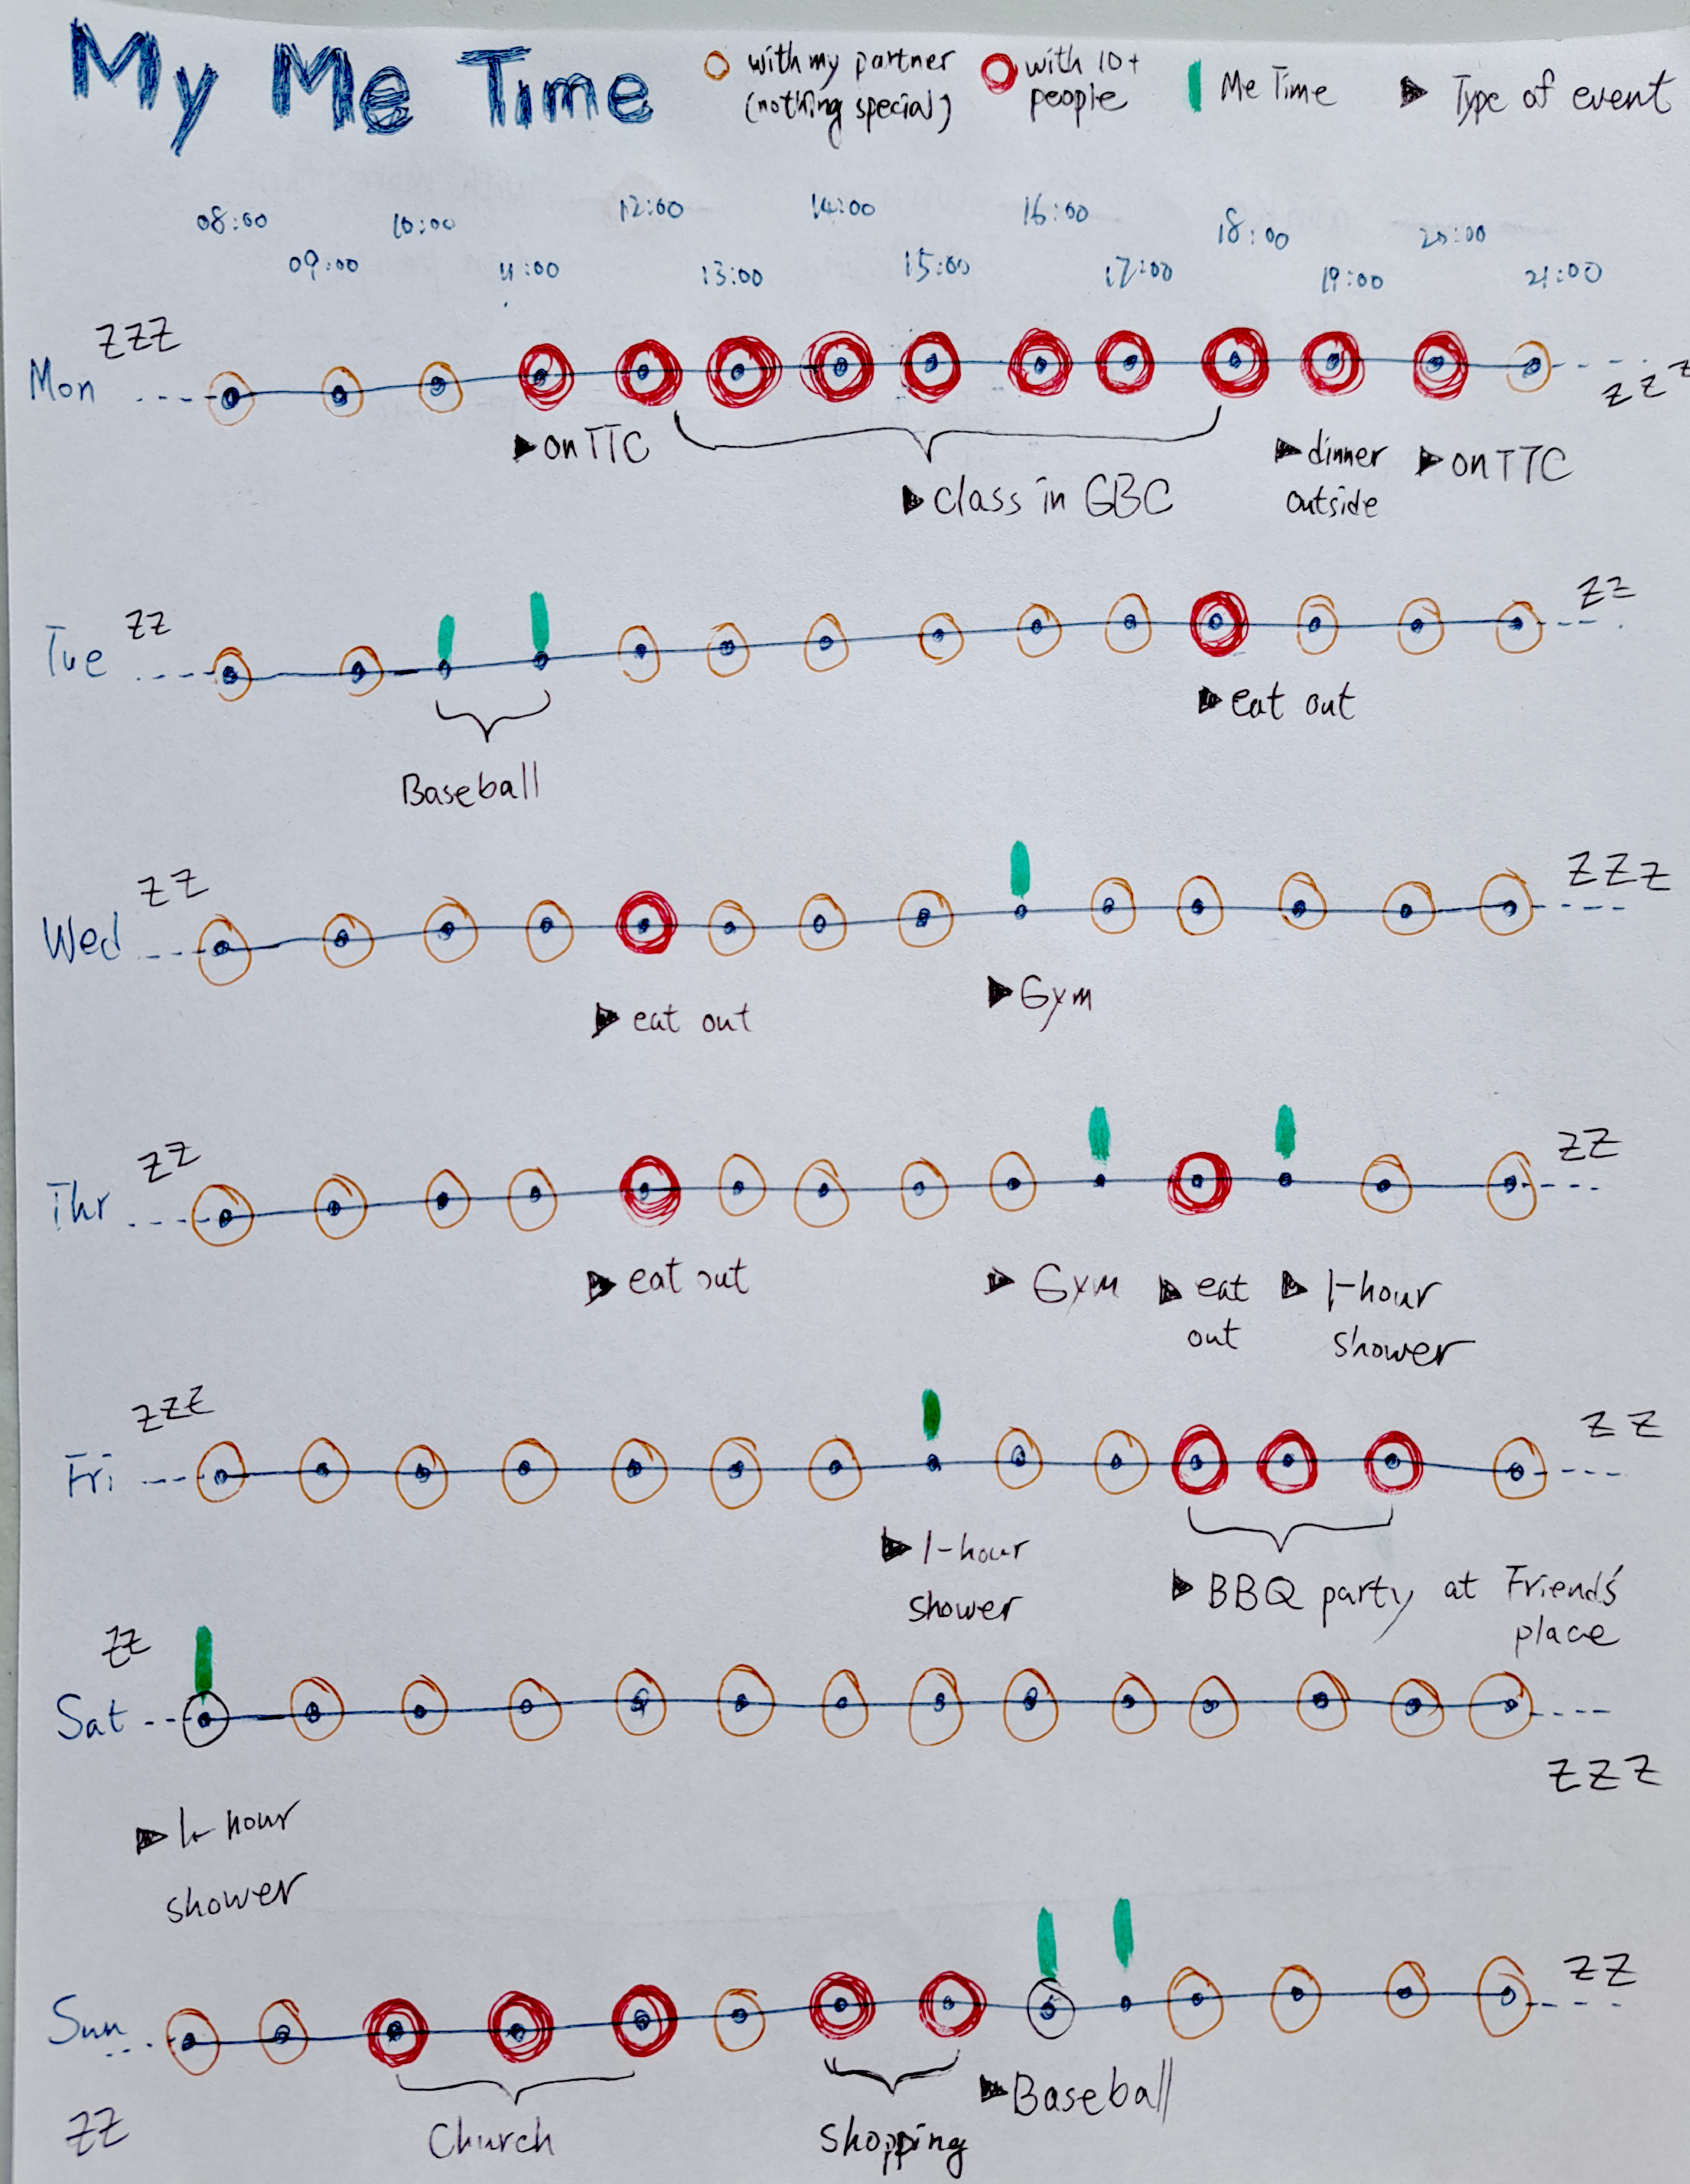 My Me Time
with my partner
(nothing special)
with 10+
people
Me Time
Type of event
08:00
09:00
10:00
11:00
12:00
13:00
14:00
15:00
16:00
17:00
18:00
19:00
20:00
21:00
Mon
ZZZ
zzz
on TTC
class in GBC
dinner
outside
on TTC
Tue
ZZ
ZZ
Baseball
eat out
Wed
ZZ
ZZZ
eat out
Gym
Thr
ZZ
ZZ
eat out
Gym
eat
out
1-hour
shower
Fri
ZZZ
ZZ
1-hour
shower
BBQ party at Friends'
place
Sat
ZZ
ZZZ
1-hour
shower
Sun
ZZ
ZZ
Church
shopping
Baseball